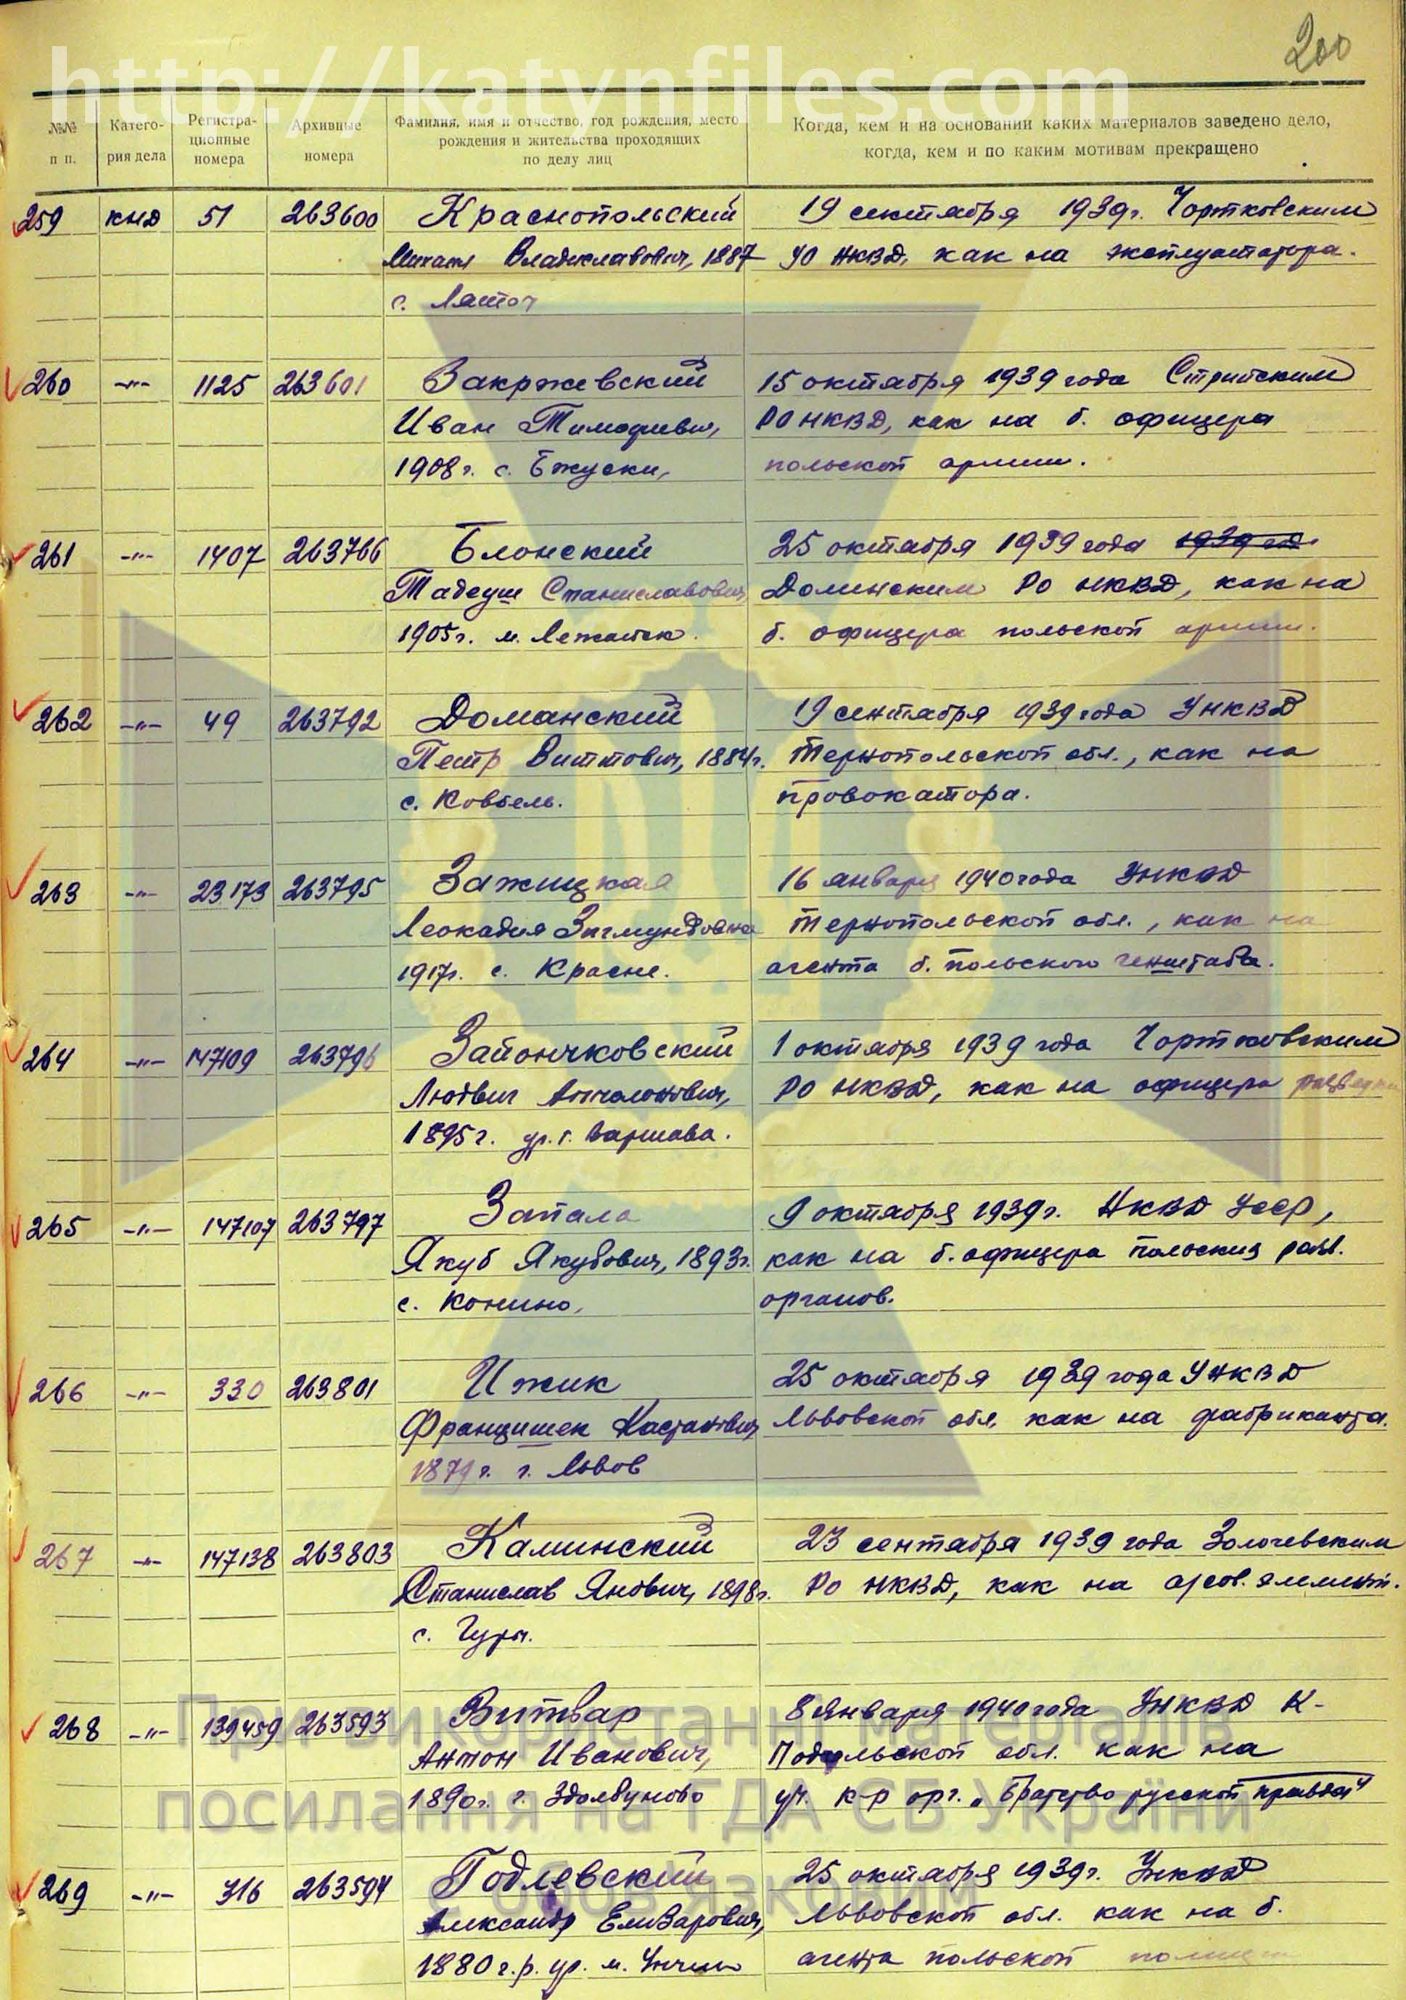 200
http://katynfiles.com
№№ п п.
Катего-рия дела
Регистра-ционные номера
Архивные номера
Фамилия, имя и отчество, год рождения, место рождения и жительства проходящих по делу лиц
Когда, кем и на основании каких материалов заведено дело, когда, кем и по каким мотивам прекращено
259 КНД 51 263600 Краснопольский 19 сентября 1939г. Чортковским
Михаил Владиславович, 1887 УО НКВД, как на эксплуататора.
с.
260 -"- 1125 263601 Закржевский 15 октября 1939 года Стрийским
Иван Тимофиевич, РО НКВД, как на б. офицера
1908 г. с. Бжуски, польской армии.
261 -"- 1407 263766 Блонский 25 октября 1939 года 1939 год.
Тадеуш Станиславович, Долинским РО НКВД, как на
1905г. м. Лежайск. б. офицера польской армии.
262 -"- 49 263792 Доманский 19 сентября 1939 года УНКВД
Петр Виттович, 1884г. Тернопольской обл., как на
с. Ковбель. провокатора.
263 -"- 23173 263795 Зажицкая 16 января 1940 года УНКВД
Леокадия Зигмундовна Тернопольской обл., как на
1917г. с. Красне. агента б. польского генштаба.
264 -"- 147109 263796 Зайончковский 1 октября 1939 года Чортковским
Людвиг Апполонович, РО НКВД, как на офицера разведки
1895 г. ур. г. Варшава.
265 -"- 147107 263797 Запала 9 октября 1939г. НКВД УССР,
Якуб Якубович, 1893г. как на б. офицера польских разв.
с. Конино, органов.
266 -"- 330 263801 Ижик 25 октября 1939 года УНКВД
Францишек Каэтанович Львовской обл. как на фабриканта.
1879 г. г. Львов
267 -"- 147138 263803 Каминский 23 сентября 1939 года Золочевским
Станислав Янович, 1898г. РО НКВД, как на а/сов. элемент.
с. Гуры.
268 -"- 139459 263593 Витвар 8 января 1940 года УНКВД К-
Антон Иванович, Подольской обл. как на
1890г. г. Здолбуново уч. к-р орг. „Братство русской правды"
269 -"- 316 263594 Годлевский 25 октября 1939г. УНКВД
Александр Елизарович, Львовской обл. как на б.
1880 г.р. ур. м. агента польской полиции
При використанні матеріалів
посилання на ГДА СБ України
є обов'язковим